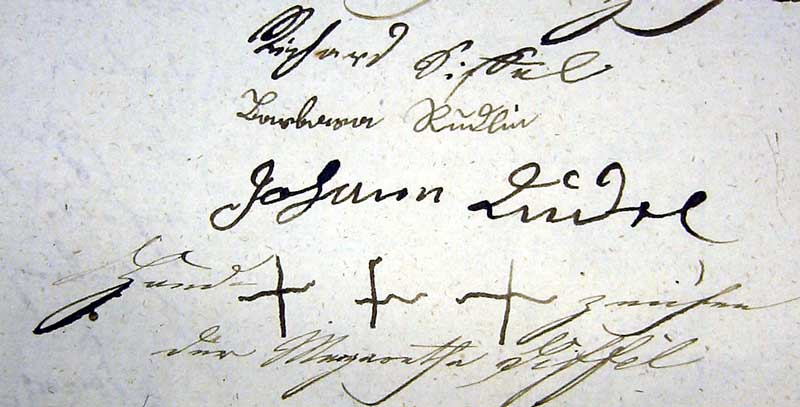 Richard Siffel
Barbara Rudlin
Johann
Hand- + + + zeichen
der Margaretha Siffel